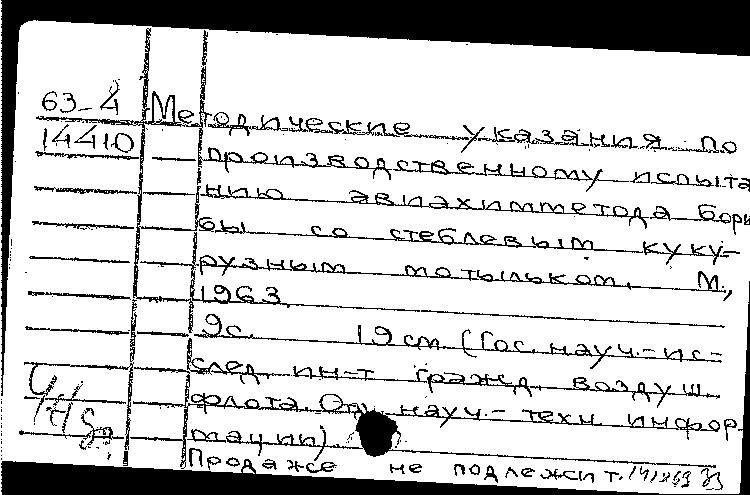 63-4 Методические указания по
14410 производственному испыта
нию авиахимметода борь
бы со стеблевым куку-
рузным мотыльком. М.,
1963.
9с. 19 см (Гос. науч.-ис-
след. ин-т гражд. воздуш.
флота. Отд. науч.-техн. инфор
мации).
Продаже не подлежит.